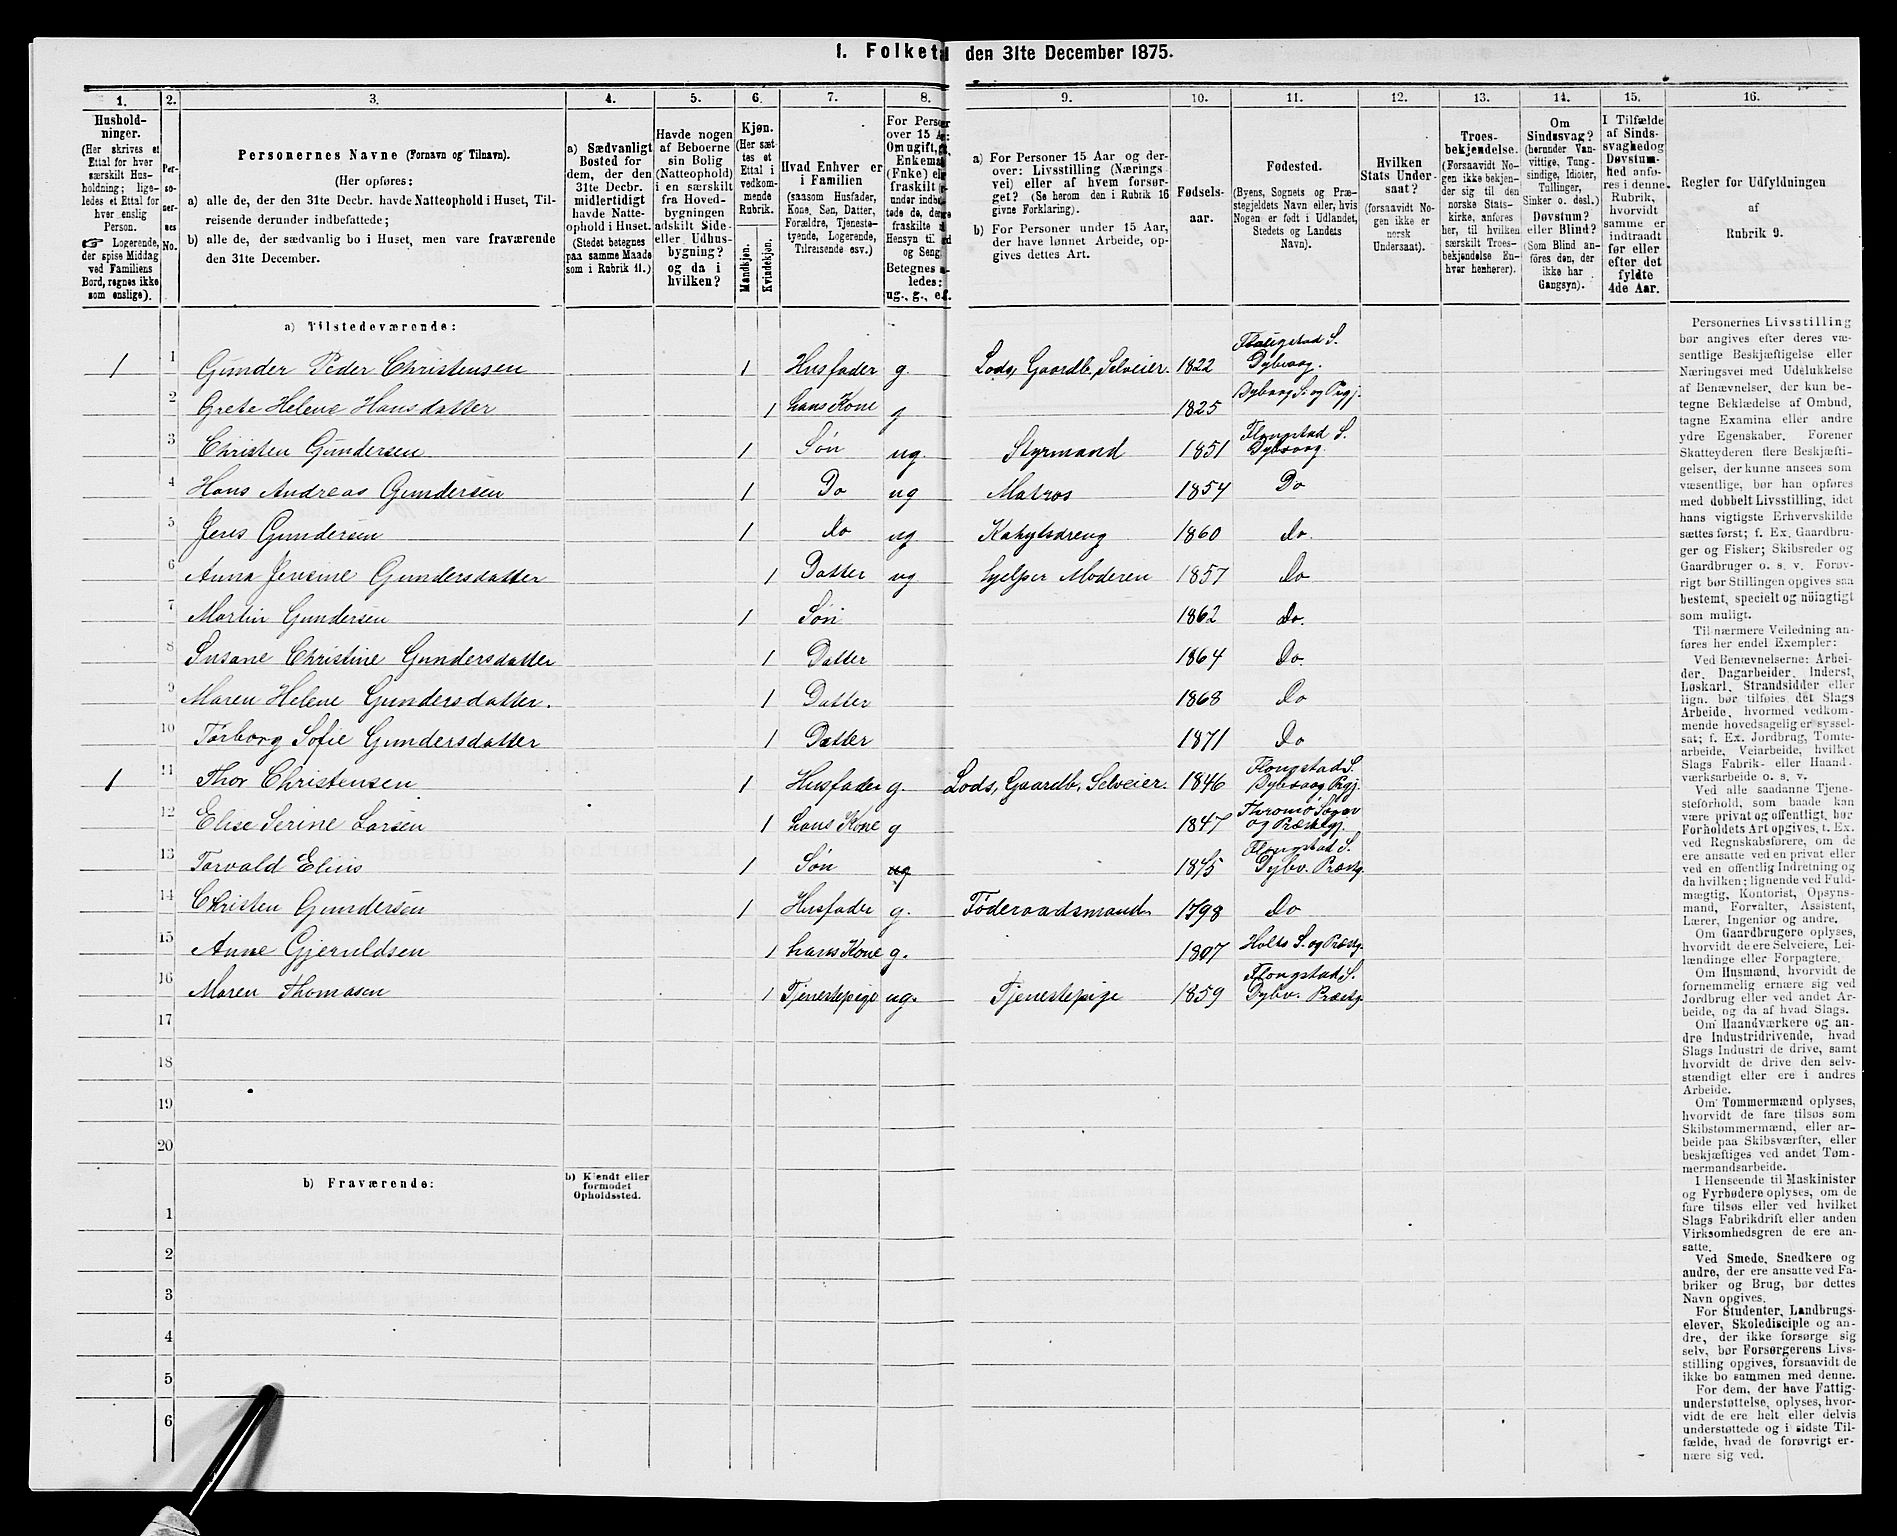 1. Folket
den 31te December 1875.
1. 2. 3. 4. 5. 6. 7. 8. 9. 10. 11. 12. 13. 14. 15. 16.
Hushold-
ninger.
(Her skrives et
Ettal for hver
særskilt Hus-
holdning; lige-
ledes et Ettal for
hver enslig
Person.
☞ Logerende,
der spise Middag
ved Familiens
Bord, regnes ikke
som enslige).
Per-
so-
ner-
nes
No.
Personernes Navne (Fornavn og Tilnavn).
(Her opføres:
a) alle de, der den 31te Decbr. havde Natteophold i Huset, Til-
reisende derunder indbefattede;
b) alle de, der sædvanlig bo i Huset, men vare fraværende
den 31te December.
a) Sædvanligt
Bosted for
dem, der den
31te Decbr.
midlertidigt
havde Natte-
ophold i Huset.
(Stedet betegnes
paa samme Maade
som i Rubrik 11.)
Havde nogen
af Beboerne
sin Bolig
(Natteophold)
i en særskilt
fra Hoved-
bygningen
adskilt Side-
eller Udhus-
bygning?
og da i
hvilken?
Kjøn.
(Her sæt-
tes et
Ettal i
vedkom-
mende
Rubrik.
Mandkjøn.
Kvindekjøn.
Hvad Enhver er
i Familien
(saasom Husfader,
Kone, Søn, Datter,
Forældre, Tjeneste-
tyende, Logerende,
Tilreisende osv.)
For Person
over 15 Aar:
Om ugift, gift,
Enkemand
(Enke) eller
fraskilt
Hensyn til
og Seng.
Betegnes
ledes:
ug., g., e.f.
a) For Personer 15 Aar og der-
over: Livsstilling (Nærings-
vei) eller af hvem forsør-
get? (Se herom den i Rubrik 16
givne Forklaring).
b) For Personer under 15 Aar,
der have lønnet Arbeide, op-
gives dettes Art.
Fødsels-
aar.
Fødested.
(Byens, Sognets og Præ-
stegjeldets Navn eller, hvis
Nogen er født i Udlandet,
Stedets og Landets
Navn).
Hvilken
Stats Under-
saat?
(forsaavidt No-
gen ikke er
norsk
Undersaat).
Troes-
bekjendelse.
(Forsaavidt No-
gen ikke bekjen-
der sig til den
norske Stats-
kirke, anføres
her, til hvilken
særskilt Troes-
bekjendelse En-
hver henhører).
Om
Sindssvag?
(herunder Van-
vittige, Tung-
sindige, Idioter,
Tullinger,
Sinker o. desl.)
Døvstum?
eller Blind?
(Som Blind an-
føres den, der
ikke har
Gangsyn).
I Tilfælde
af Sinds-
svaghed og
Døvstum-
hed anfø-
res i denne
Rubrik,
hvorvidt
samme er
indtraadt
før eller
efter det
fyldte
4de Aar.
Regler for Udfyldningen
af
Rubrik 9.
a) Tilstedeværende:
1 1 Gunder Peder Christensen 1 Husfader g. Lods, Gaardb, Selveier. 1822 Flangstad S. Dybvaag.
2 Grete Helene Hansdatter 1 hans Kone g 1825 Dybvaag S. og Prgj.
3 Christen Gundersen 1 Søn ug. Styrmand 1851 Flangstad S. Dybvaag
4 Hans Andreas Gundersen 1 Do ug Matros 1854 Do
5 Jens Gundersen 1 do ug Kahytsdreng 1860 do.
6 Anna Jensine Gundersdatter 1 Datter ug hjelper Moderen 1857 Do
7 Martin Gundersen 1 Søn 1862 do.
8 Susane Christine Gundersdatter 1 Datter 1864 Do.
9 Maren Helene Gundersdatter. 1 Datter 1868 Do
10 Torborg Sofie Gundersdatter 1 Datter 1871 Do
1 11 Thor Christensen 1 Husfader g. Lods, Gaardb, Selveier. 1846 Flangstad S. Dybvaag Prgj.
12 Elise Serine Larsen 1 hans Kone g 1847 Thromø Sogn og Præstgj.
13 Torvald Elius 1 Søn ug 1875 Flangstad S. Dybv. Præstg.
14 Christen Gundersen 1 Husfader g. Föderaadsmand 1798 Do
15 Anne Gjeruldsen 1 hans Kone g. 1807 Holts S. og Præstg.
16 Maren Thomasen 1 Tjenestepige ug. Tjenestepige 1859 Flangstad S. Dybv. Præstg.
17
18
19
20
b) Fraværende:
b) Kjendt eller
formodet
Opholdssted.
1
2
3
4
5
6
Personernes Livsstilling
bør angives efter deres væ-
sentlige Beskjæftigelse eller
Næringsvei med Udelukkelse
af Benævnelser, der kun be-
tegne Beklædelse af Ombud,
tagne Examina eller andre
ydre Egenskaber. Forener
Skatteyderen flere Beskjæfti-
gelser, der kunne ansees som
væsentlige, bør han opføres
med dobbelt Livsstilling, idet
hans vigtigste Erhvervskilde
sættes først; f. Ex. Gaardbru-
ger og Fisker; Skibsreder og
Gaardbruger o. s. v. Forøv-
rigt bør Stillingen opgives saa
bestemt, specielt og nöiagtigt
som muligt.
Til nærmere Veiledning an-
føres her endel Exempler:
Ved Benævnelserne: Arbei-
der, Dagarbeider, Inderst,
Løskarl, Strandsidder eller
lign. bør tilføies det Slags
Arbeide, hvormed vedkom-
mende hovedsagelig er syssel-
sat; f. Ex. Jordbrug, Tomte-
arbeide, Veiarbeide, hvilket
Slags Fabrik- eller Haand-
værksarbeide o. s. v.
Ved alle saadanne Tjene-
steforhold, som baade kan
være privat og offentligt, bør
Forholdets Art opgives, t. Ex.
ved Regnskabsførere, om de
ere ansatte ved en privat eller
ved en offentlig Indretning og
da hvilken; lignende ved Fuld-
mægtig, Kontorist, Opsyns-
mand, Forvalter, Assistent,
Lærer, Ingeniør og andre.
Om Gaardbrugere oplyses,
hvorvidt de ere Selveiere, Lei-
lændinge eller Forpagtere.
Om Husmænd, hvorvidt de
fornemmelig ernære sig ved
Jordbrug eller ved andet Ar-
beide, og da af hvad Slags.
Om Haandværkere og an-
dre Industridrivende, hvad
Slags Industri de drive, samt
hvorvidt de drive den selv-
stændigt eller ere i andres
Arbeide.
Om Tømmermænd oplyses,
hvorvidt de fare tilsøs som
Skibstømmermænd, eller ar-
beide paa Skibsværfter, eller
beskjæftiges ved andet Tøm-
mermandsarbeide.
I Henseende til Maskinister
og Fyrbødere oplyses, om de
fare tilsøs eller ved hvilket
Slags Fabrikdrift eller anden
Virksomhedsgren de ere an-
satte.
Ved Smede, Snedkere og
andre, der ere ansatte ved Fa-
briker og Brug, bør dettes
Navn opgives.
For Studenter, Landbrugs-
elever, Skoledisciple og an-
dre, der ikke forsørge sig
selv, bør Forsørgerens Livs-
stilling opgives, forsaavidt de
ikke bo sammen med denne.
For dem, der have Fattig-
understøttelse, oplyses, hvor-
vidt de ere helt eller delvis
understøttede og i sidste Til-
fælde, hvad de forøvrigt er-
nære sig ved.